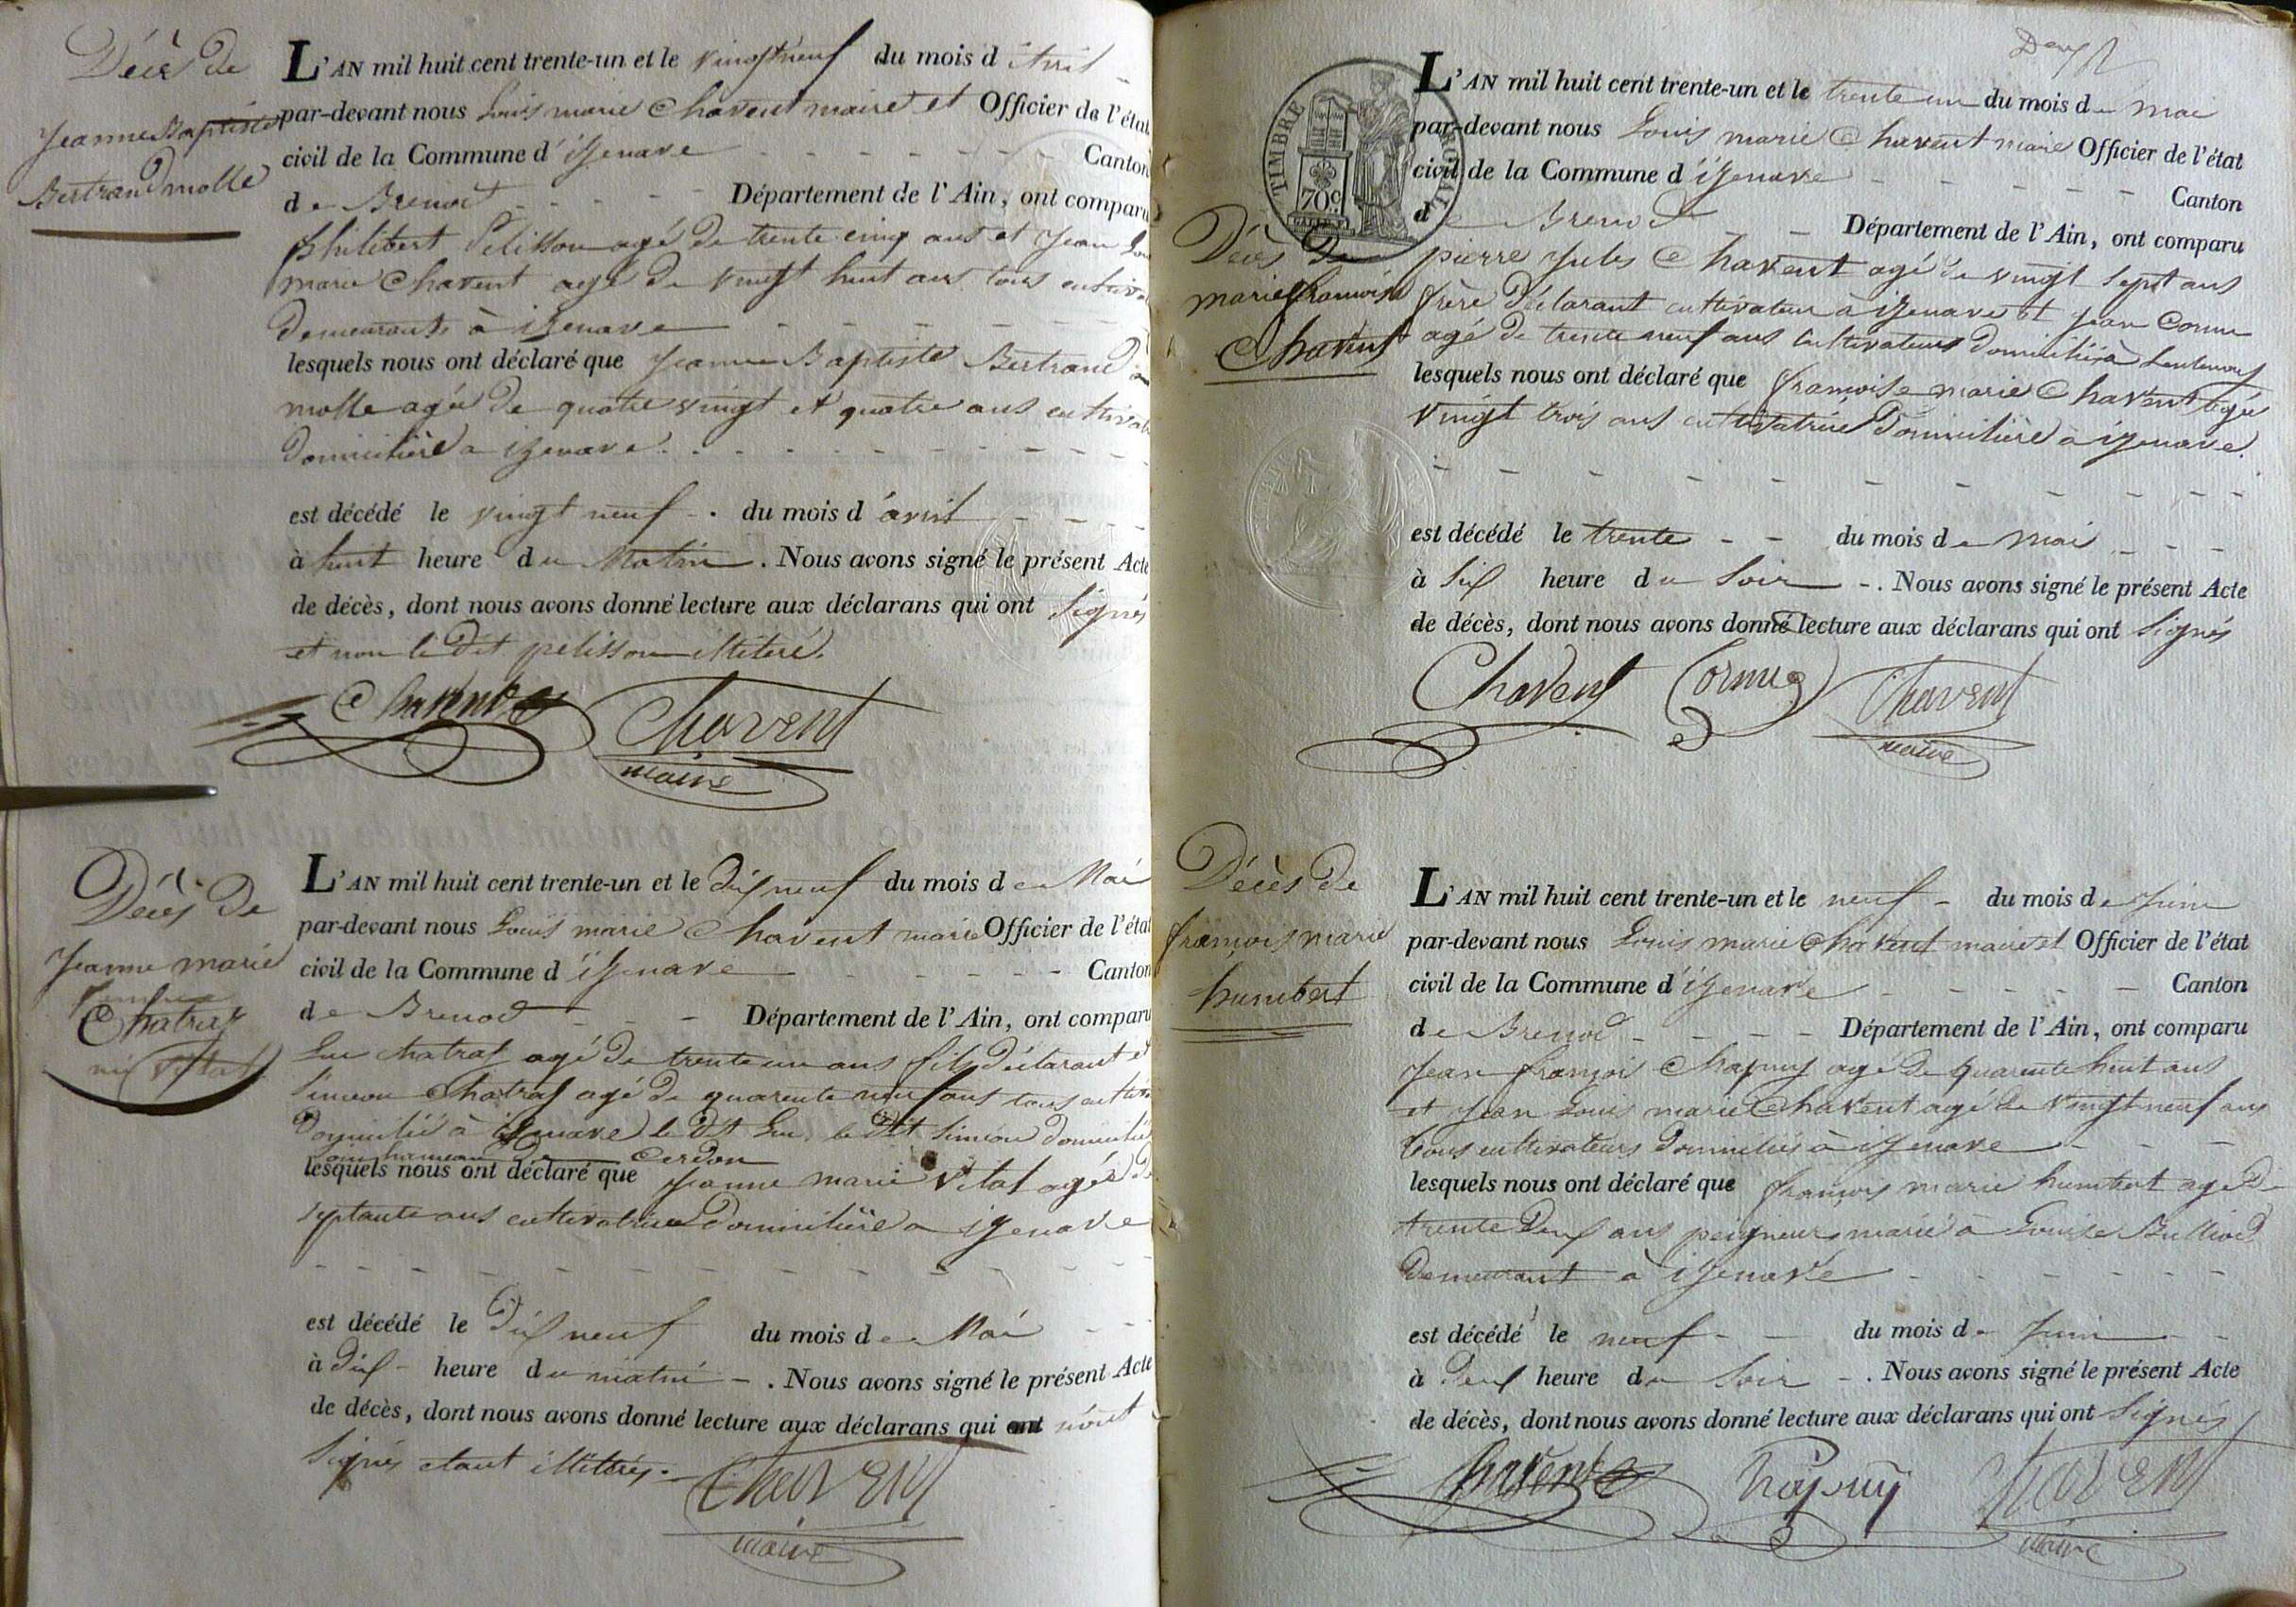 Décès de
Jeanne Baptiste
Bertrand molle
L'AN mil huit cent trente-un et le vingt neuf du mois d'Avril
par-devant nous Louis marie Chavent maire et Officier de l'état
civil de la Commune d'izenave Canton
de Brenod Département de l'Ain, ont comparu
philibert Pelisson agé de trente cinq ans et Jean
marie Chavent agé de vingt huit ans tous
demeurants à izenave
lesquels nous ont déclaré que Jeanne Baptiste Bertrand
molle agée de quatre vingt et quatre ans
domiciliée a izenave.
est décédé le vingt neuf du mois d'avril
à huit heure du Matin. Nous avons signé le présent Acte
de décès, dont nous avons donné lecture aux déclarans qui ont signés
et non le dit pelisson illiteré.
Chavent Chavent
maire
Décès de
Jeanne marie
Chatras
née Vital
L'AN mil huit cent trente-un et le dix neuf du mois de Mai
par-devant nous Louis marie Chavent maire Officier de l'état
civil de la Commune d'izenave Canton
de Brenod Département de l'Ain, ont comparu
Luc chatras agé de trente un ans fils déclarant et
Simeon Chatras agé de quarente neuf ans tous
domicilié à izenave le dit Luc, le dit Siméon domicilié
hameau de Cerdon
lesquels nous ont déclaré que Jeanne marie Vital agée de
septante ans cultivatrice domiciliée a izenave
est décédé le dix neuf du mois de Mai
à dix heure du matin. Nous avons signé le présent Acte
de décès, dont nous avons donné lecture aux déclarans qui ont n'ont
signés etant illiterés.
Chavent
maire
TIMBRE ROYAL
70c
L'AN mil huit cent trente-un et le trente un du mois de mai
par-devant nous Louis marie Chavent maire Officier de l'état
civil de la Commune d'izenave Canton
de Brenod Département de l'Ain, ont comparu
Décès de
marie françoise
Chavent
pierre Jules Chavent agé de vingt sept ans
frère déclarant cultivateur à izenave et Jean Cornu
agé de trente neuf ans cultivateurs domicilié à
lesquels nous ont déclaré que françoise marie Chavent agée
vingt trois ans cultivatrice domiciliée à izenave.
est décédé le trente du mois de mai
à six heure du soir. Nous avons signé le présent Acte
de décès, dont nous avons donné lecture aux déclarans qui ont signés
Chavent Cornu Chavent
maire
Décès de
françois marie
humbert
L'AN mil huit cent trente-un et le neuf du mois de Juin
par-devant nous Louis marie Chavent maire et Officier de l'état
civil de la Commune d'izenave Canton
de Brenod Département de l'Ain, ont comparu
Jean françois Chapuy agé de quarente huit ans
et Jean Louis marie Chavent agé de vingt neuf ans
tous cultivateurs domiciliés à izenave
lesquels nous ont déclaré que françois marie humbert agé de
trente deux ans peigneur, marié à Louise Bulliod
demeurant à izenave
est décédé le neuf du mois de Juin
à deux heure du soir. Nous avons signé le présent Acte
de décès, dont nous avons donné lecture aux déclarans qui ont signés
Chavent Chapuy Chavent
maire